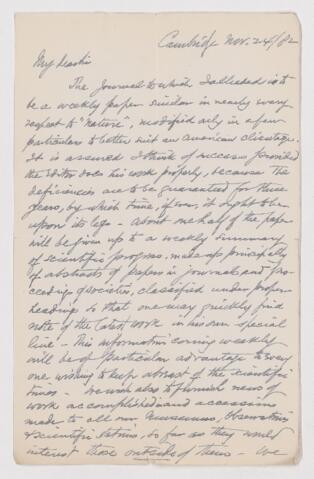 Cambridge Nov. 24/82
My dear Sir
The Journal to which I alluded is to
be a weekly paper similar in nearly every
respect to "Nature", modified only in a few
particulars to better suit an American clientage.
It is assured I think of success provided
the editor does his work properly, because the
deficiencies are to be guaranteed for three
years, by which time, if ever, it ought to be
upon its legs – About one half of the paper
will be given up to a weekly summary
of scientific progress, made up principally
of abstracts of papers in journals and pro-
ceedings of societies, classified under proper
headings so that one may quickly find
note of the latest work in his own special
line – This information coming weekly
will be of particular advantage to every
one wishing to keep abreast of the scientific
times – We wish also to furnish news of
work accomplished and accessions
made to all our Museums, Observatories
& scientific , so far as they would
interest those outside of them – We